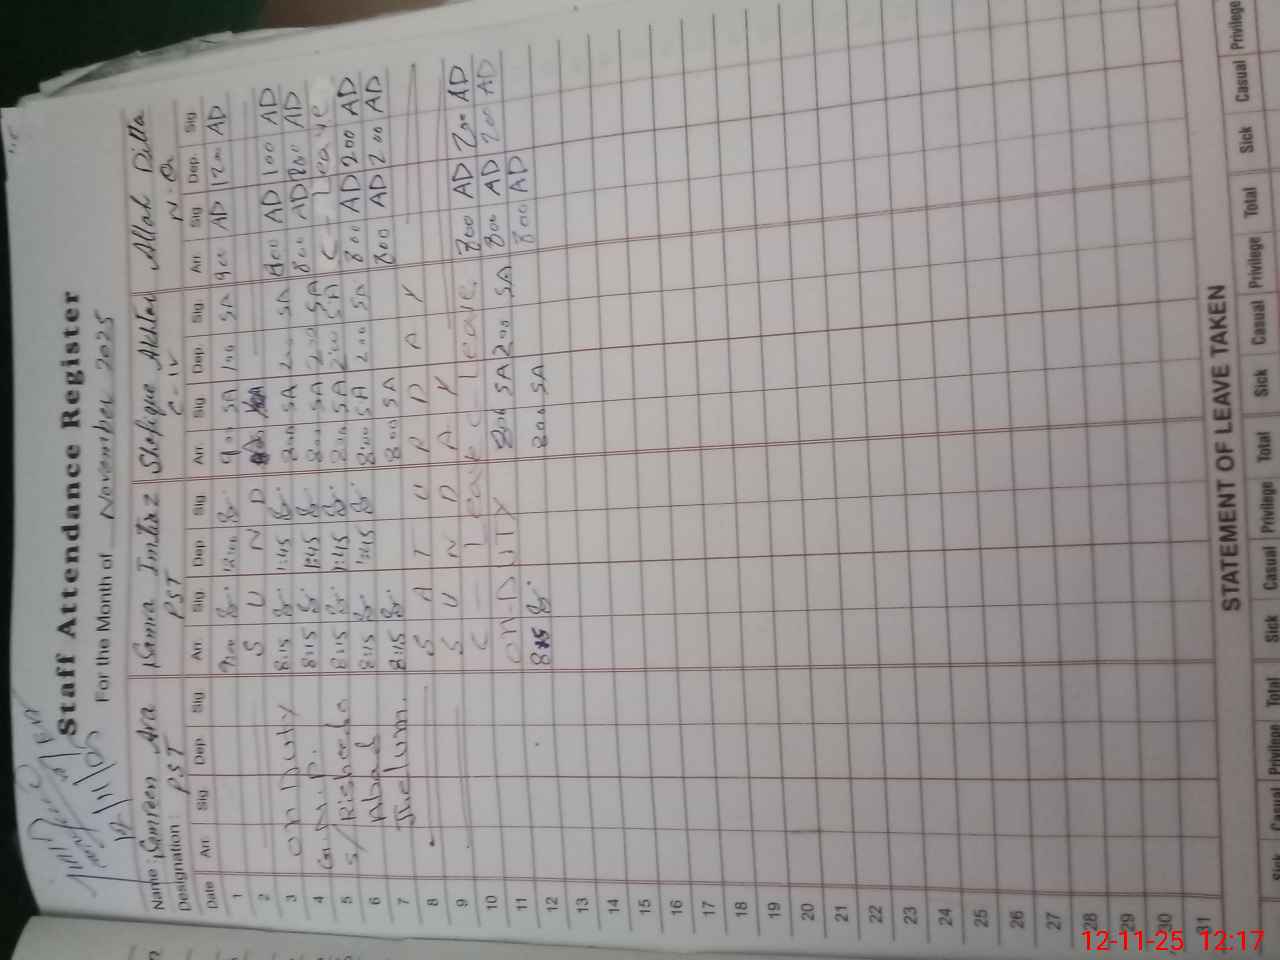 Staff Attendance Register
For the Month of November 2025
Name: Samreen Ara Samra Imtiaz Shafique Akhtar Allah Ditta
Designation: PST PST C-IV N.Q
Date Arr Sig Dep. Sig Arr. Sig Dep Sig Arr. Sig Dep. Sig Arr Sig Dep. Sig
1 9:00 12:00 900 SA 100 SA 900 AD 1200 AD
2 S U N D
3 On Duty 8:15 1:45 800 SA 200 SA 800 AD 100 AD
4 G.M.P. 8:15 1:45 800 SA 200 SA 800 AD 200 AD
5 S/ 8:15 1:45 800 SA 200 SA C - Leave
6 Abad 8:15 1:45 800 SA 200 SA 800 AD 200 AD
7 Jhelum. 8:15 800 SA 800 AD 200 AD
8 S A T U R D A Y
9 S U N D A Y
10 C - Leave C - Leave 800 AD 200 AD
11 On-DUTY 800 SA 200 SA 800 AD 200 AD
12 8:15 800 SA 800 AD
13
14
15
16
17
18
19
20
21
22
23
24
25
26
27
28
29
30
31
STATEMENT OF LEAVE TAKEN
Sick Casual Privilege Total Sick Casual Privilege Total Sick Casual Privilege Total Sick Casual Privilege
12-11-25 12:17